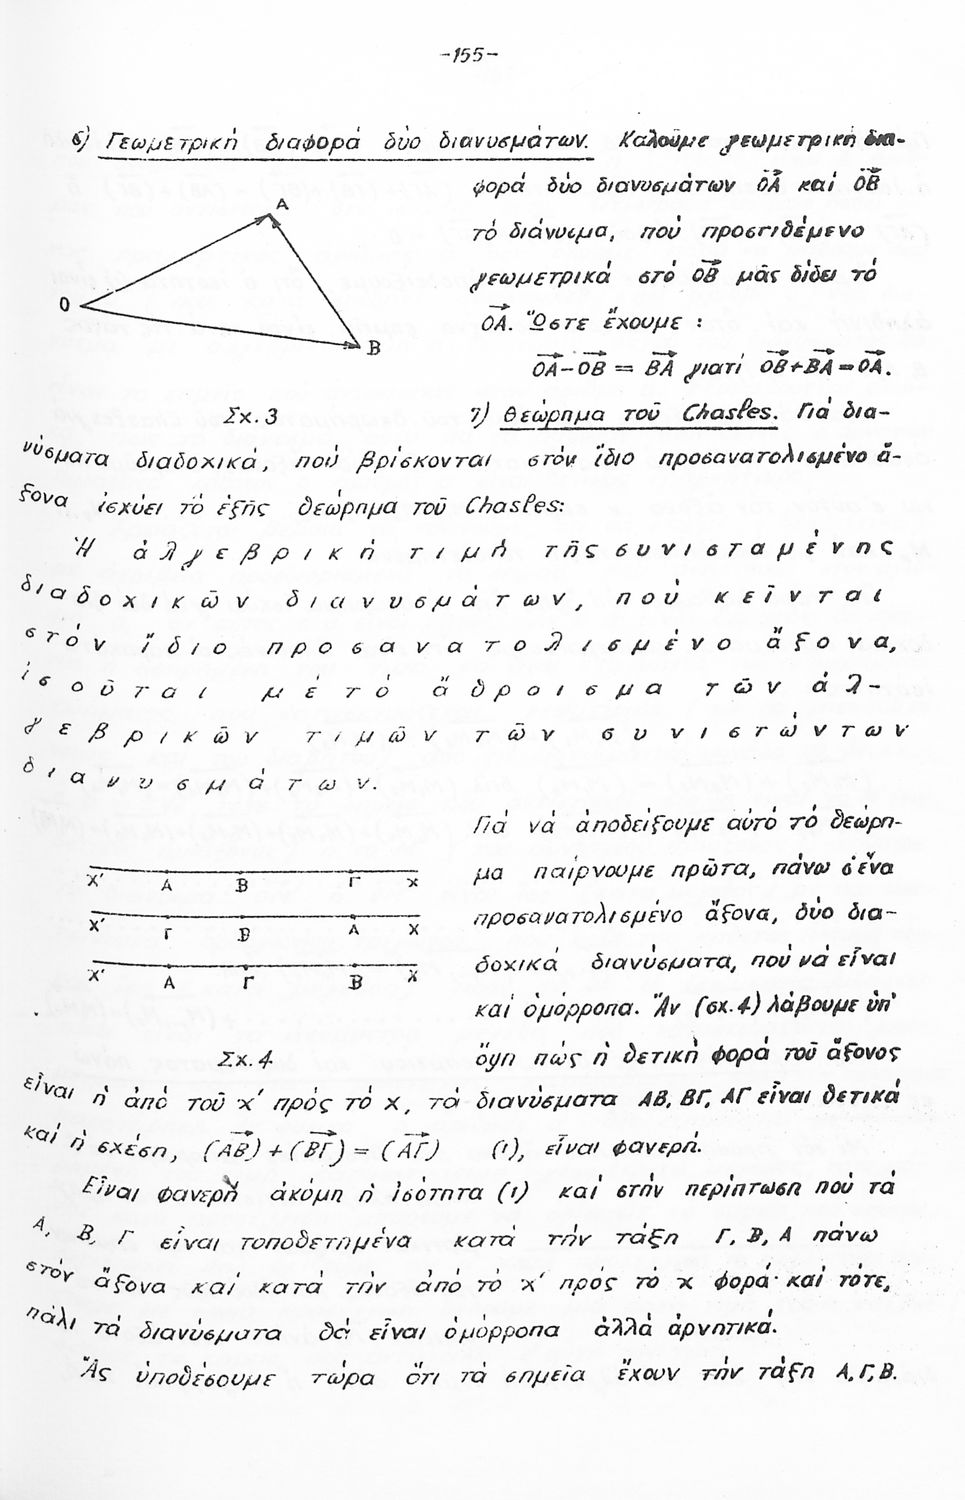 -155-
6) Γεωμετρική διαφορά δύο διανυσμάτων. Καλοῦμε γεωμετρική δια-
φορά δύο διανυσμάτων ΟΑ καί ΟΒ
τό διάνυσμα, πού προστιθέμενο
γεωμετρικά στό ΟΒ μᾶς δίδει τό
ΟΑ. Ὥστε ἔχουμε :
ΟΑ-ΟΒ = ΒΑ γιατί ΟΒ+ΒΑ=ΟΑ.
Α
Ο
Β
Σχ.3
7) Θεώρημα τοῦ Chasles. Γιά δια-
νύσματα διαδοχικά, πού βρίσκονται στόν ἴδιο προσανατολισμένο ἄ-
ξονα ἰσχύει τό ἑξῆς θεώρημα τοῦ Chasles:
Ἡ ἀλγεβρική τιμή τῆς συνισταμένης
διαδοχικῶν διανυσμάτων, πού κεῖνται
στόν ἴδιο προσανατολισμένο ἄξονα,
ἰσοῦται μέ τό ἄθροισμα τῶν ἀλ-
γεβρικῶν τιμῶν τῶν συνιστώντων
διανυσμάτων.
Γιά νά ἀποδείξουμε αὐτό τό θεώρη-
μα παίρνουμε πρῶτα, πάνω σ'ἕνα
προσανατολισμένο ἄξονα, δύο δια-
δοχικά διανύσματα, πού νά εἶναι
καί ὁμόρροπα. Ἄν (σχ.4) λάβουμε ὑπ'
Χ' Α Β Γ Χ
Χ' Γ Β Α Χ
Χ' Α Γ Β Χ
Σχ.4
ὄψη πώς ἡ θετική φορά τοῦ ἄξονος
εἶναι ἡ ἀπό τοῦ x' πρός τό x, τά διανύσματα ΑΒ, ΒΓ, ΑΓ εἶναι θετικά
καί ἡ σχέση, (ΑΒ) + (ΒΓ) = (ΑΓ) (1), εἶναι φανερή.
Εἶναι φανερή ἀκόμη ἡ ἰσότητα (1) καί στήν περίπτωση πού τά
Α, Β, Γ εἶναι τοποθετημένα κατά τήν τάξη Γ, Β, Α πάνω
στόν ἄξονα καί κατά τήν ἀπό τό x' πρός τό x φορά· καί τότε,
πάλι τά διανύσματα θά εἶναι ὁμόρροπα ἀλλά ἀρνητικά.
Ἄς ὑποθέσουμε τώρα ὅτι τά σημεῖα ἔχουν τήν τάξη Α, Γ, Β.